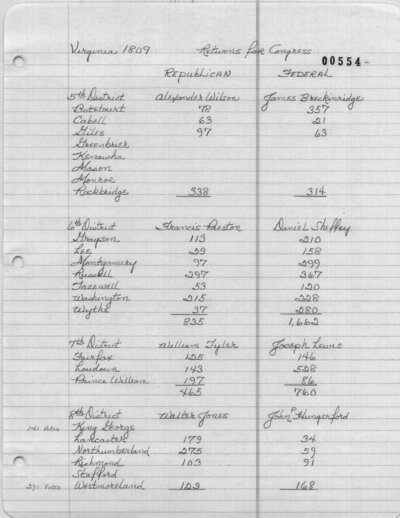 Virginia 1809 Returns for Congress
00554
REPUBLICAN FEDERAL
5th District Alexander Wilson James Breckinridge
Botetourt 78 357
Cabell 63 21
Giles 97 63
Greenbrier
Kanawha
Mason
Monroe
Rockbridge 338 314
6th District Francis Preston Daniel Sheffey
Grayson 113 210
Lee 23 158
Montgomery 97 299
Russell 297 367
Tazewell 53 120
Washington 215 228
Wythe 37 280
835 1,662
7th District William Tyler Joseph Lewis
Fairfax 125 146
Loudoun 143 528
Prince William 197 86
465 760
8th District Walter Jones John P Hungerford
141 Votes King George
Lancaster 179 34
Northumberland 275 59
Richmond 103 91
Stafford
291 Votes Westmoreland 123 168